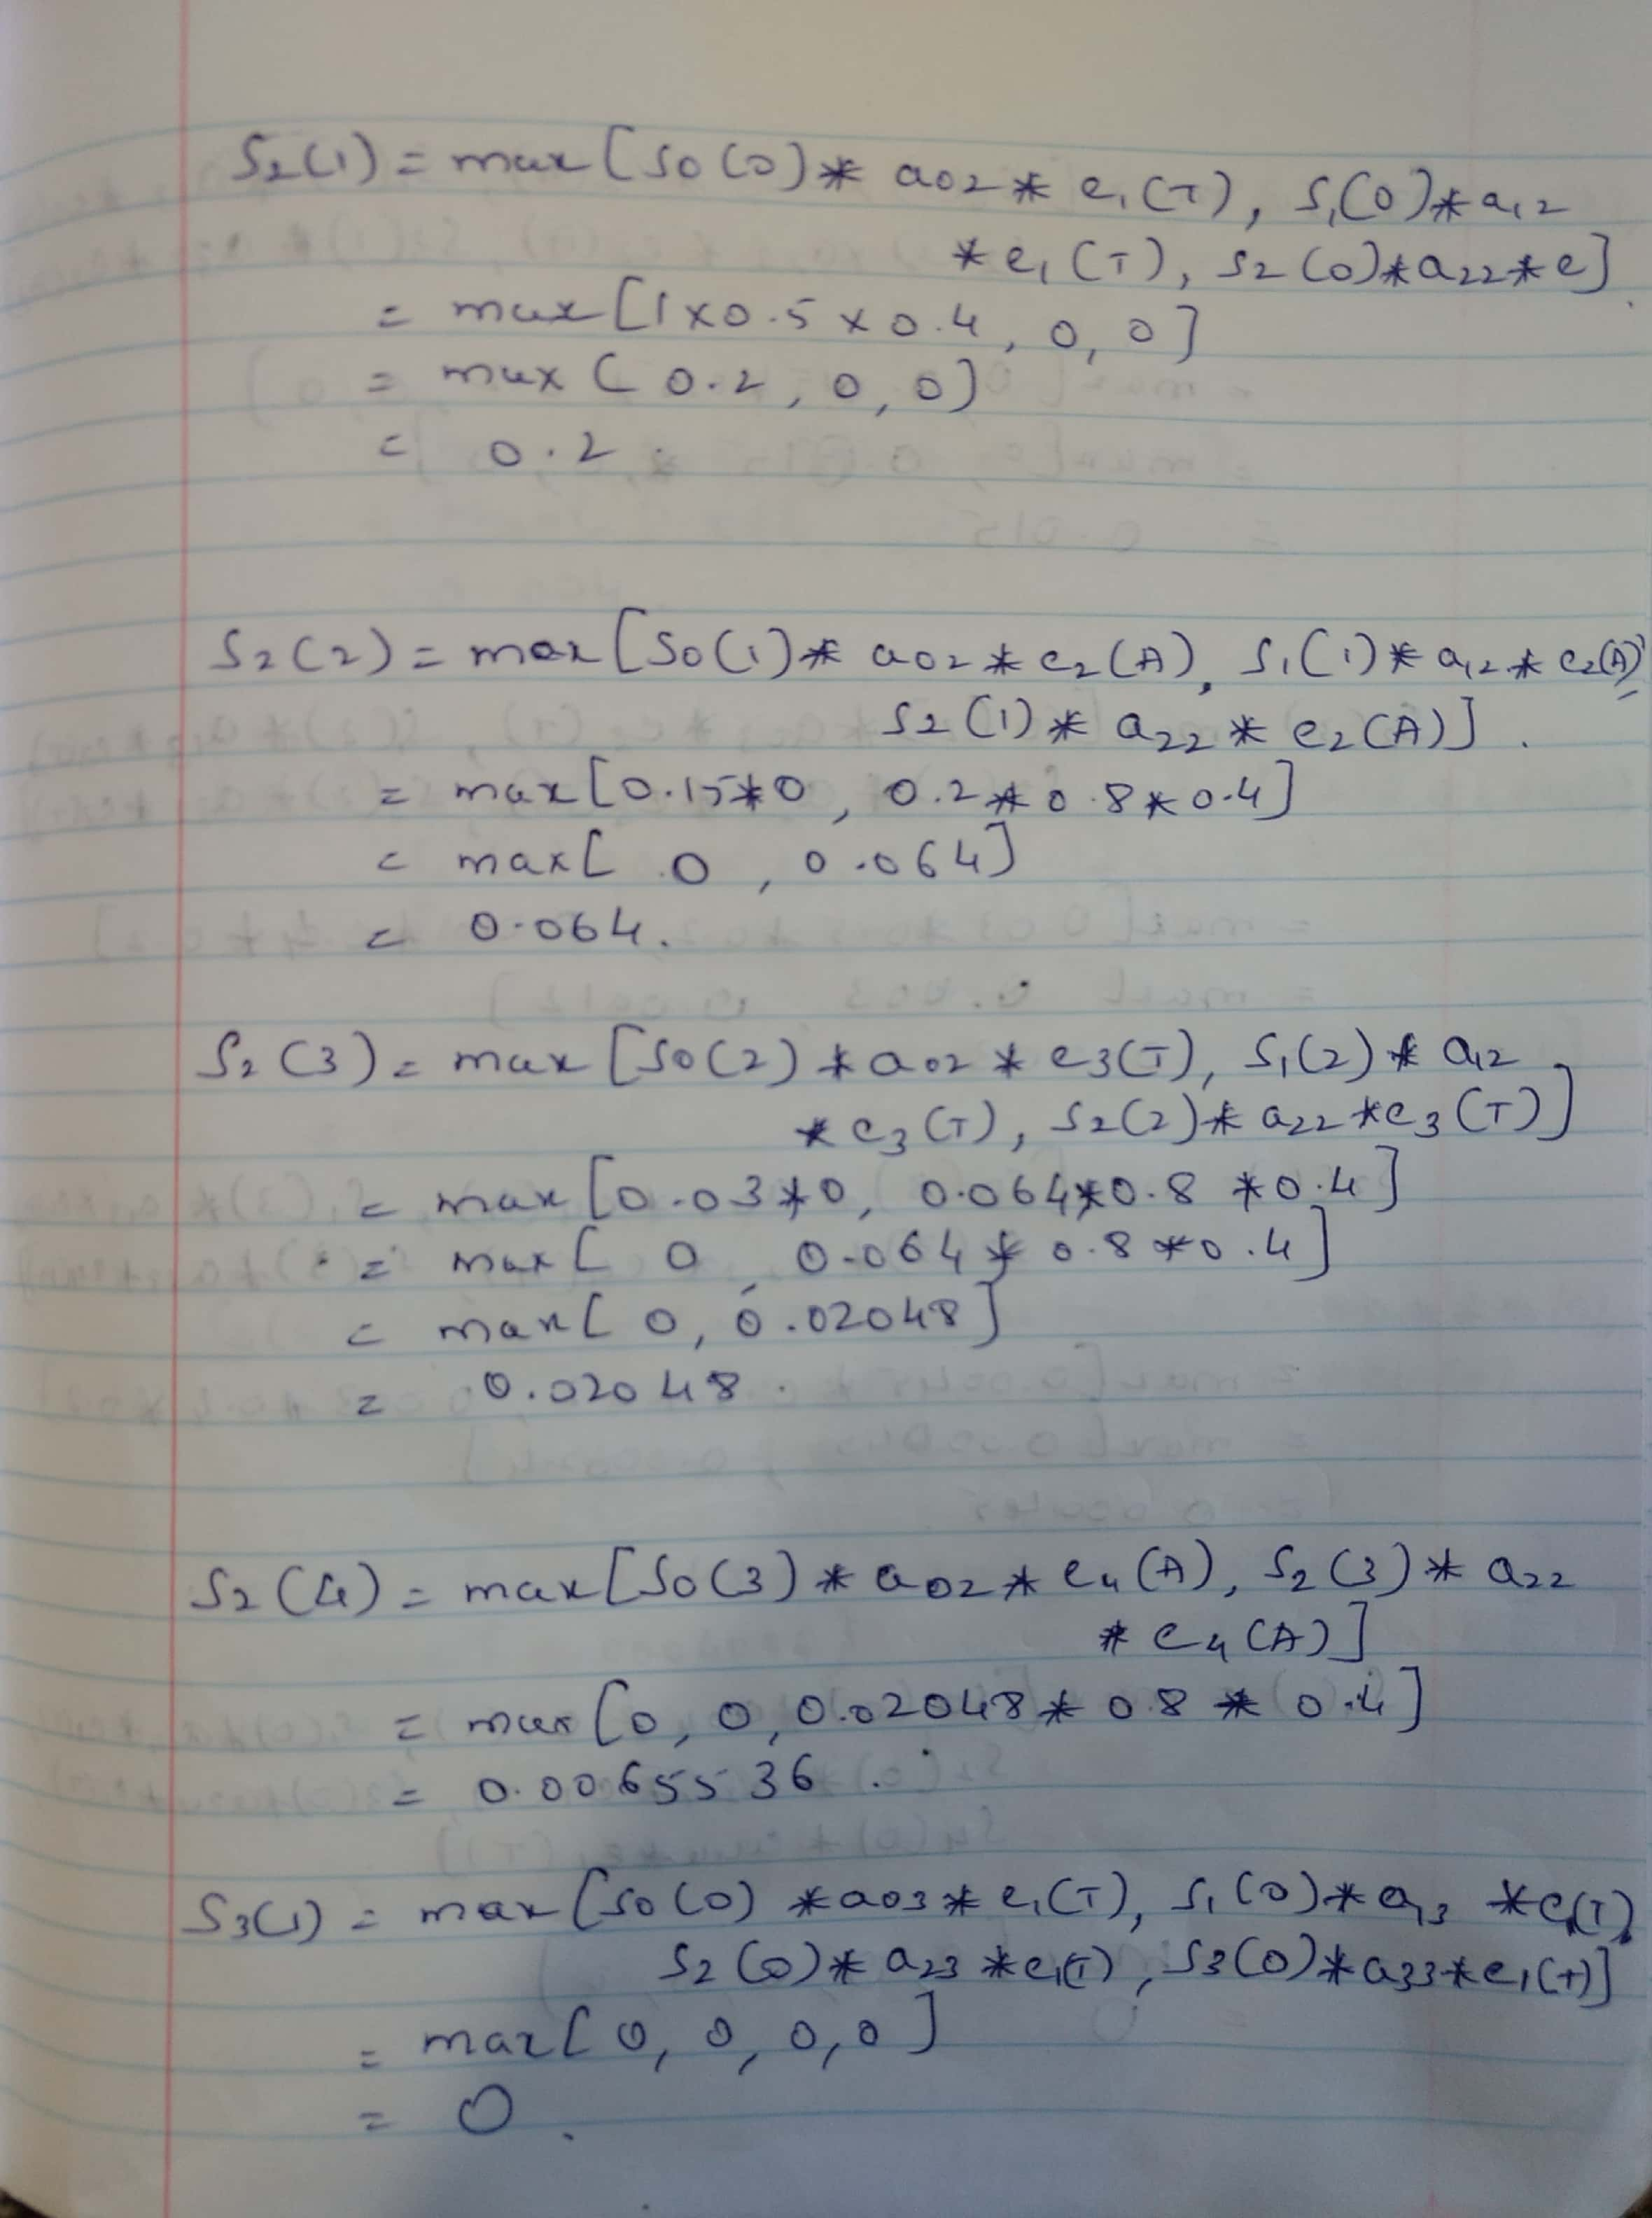 S₂(1) = max[S0(0)* a02 * e₁(T), S₁(0)*a12
*e₁(T), S2(0)*a22*e]
= max[1×0.5×0.4, 0, 0]
= max(0.2, 0, 0)
= 0.2.
S2(2) = max[S0(1)* a02*e2(A), S₁(1)* a12*e2(A),
S2(1)* a22* e2(A)].
= max[0.15*0, 0.2*0.8*0.4]
= max[ 0 , 0.064]
= 0.064.
S₂(3) = max[S0(2)*a02*e3(T), S₁(2)* a12
*e3(T), S2(2)* a22*e3(T)]
= max[0.03*0, 0.064*0.8*0.4]
= max[ 0, 0.064*0.8*0.4]
= max[ 0, 0.02048]
= 0.02048.
S2(4) = max[S0(3)* a02* e4(A), S2(3)* a22
* e4(A)]
= max[0, 0, 0.02048* 0.8* 0.4]
= 0.0065536.
S3(1) = max[S0(0)*a03*e₁(T), S₁(0)*a13 *e₁(T),
S2(0)* a23*e₁(T), S3(0)*a33*e₁(T)]
= max[0, 0, 0, 0]
= 0.